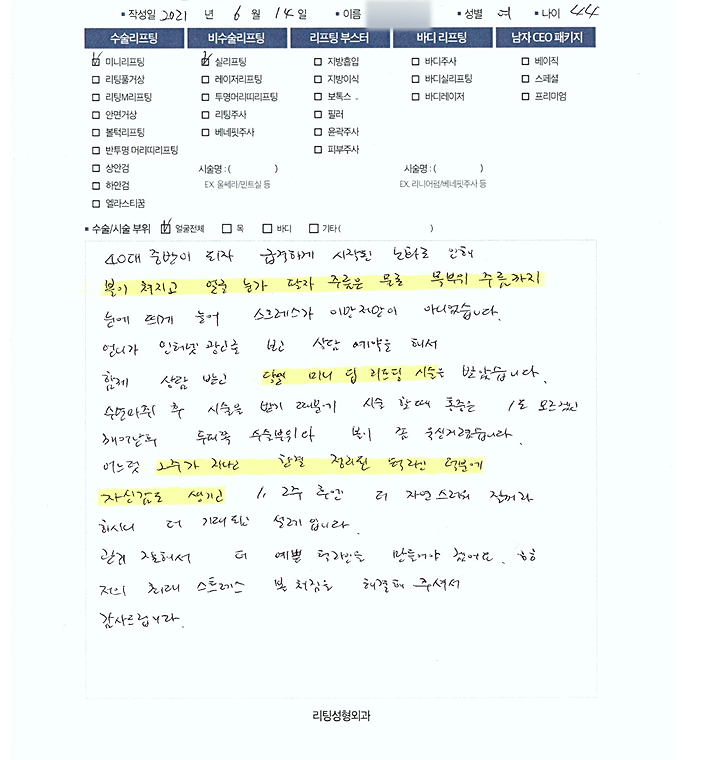 작성일 2021 년 6 월 14 일 이름 성별 여 나이 44
수술리프팅 비수술리프팅 리프팅 부스터 바디 리프팅 남자 CEO 패키지
미니리프팅 실리프팅 지방흡입 바디주사 베이직
리팅풀거상 레이저리프팅 지방이식 바디실리프팅 스페셜
리팅M리프팅 투명머리띠리프팅 보톡스 바디레이저 프리미엄
안면거상 리팅주사 필러
볼턱리프팅 베네핏주사 윤곽주사
반투명 머리띠리프팅 피부주사
상안검 시술명 : ( ) 시술명 : ( )
하안검 EX. 울쎄라/민트실 등 EX. 리니어펌/베네핏주사 등
엘라스티꿈
수술/시술 부위 얼굴전체 목 바디 기타 ( )
40대 중반이 되자 급격하게 시작된 노화로 인해
볼이 쳐지고 얼굴 눈가 팔자 주름은 물론 목부위 주름까지
눈에 띄게 늘어 스트레스가 이만저만이 아니었습니다.
언니가 인터넷 광고를 보고 상담 예약을 해서
함께 상담 받고 당일 미니 딥 리프팅 시술을 받았습니다.
수면마취 후 시술을 받기 때문에 시술 할때 통증은 1도 모르겠고
깨어난뒤 두피쪽 수술부위와 볼이 좀 욱신거렸습니다.
어느덧 2주가 지나고 한결 정리된 턱라인 덕분에
자신감도 생기고 1, 2주 후엔 더 자연스러워 질꺼라
하시니 더 기대되고 설레입니다.
관리 잘해서 더 예쁜 턱라인을 만들어야 겠어요. ㅎㅎ
저의 최대 스트레스 볼 쳐짐을 해결해 주셔서
감사드립니다.
리팅성형외과